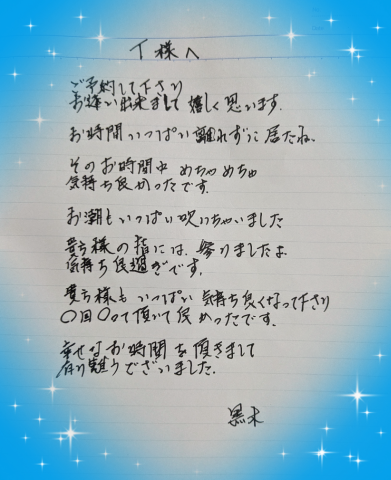 T様へ
ご予約して下さり
お逢い出来まして嬉しく思います.
お時間いっぱい離れずに居たね.
そのお時間中めちゃめちゃ
気持ち良かったです.
お潮もいっぱい吹いちゃいました
貴方様の指には、参りましたよ
気持ち良過ぎです.
貴方様もいっぱい気持ち良くなって下さり
〇回〇って頂いて良かったです.
幸せなお時間を頂きまして
有り難うございました.
黒木